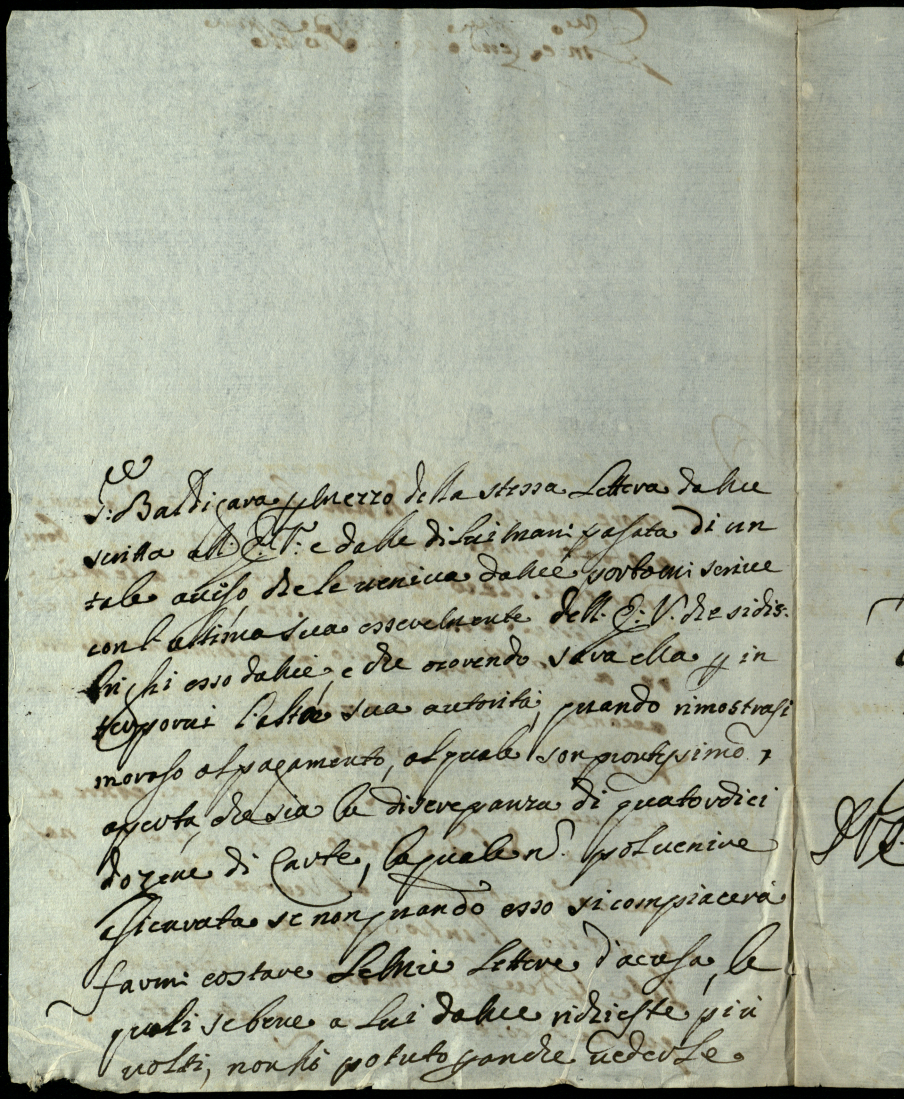 S: Baldigara p mezzo della stessa Lettera da me
scritta all E: V: e dalle di lui mani pasata di un
tale aviso che le veniva da me portomi scrive
con l'ultima sua essere mente dell. E: V. che si dis-
brighi esso da me e che ocorendo sara ella p in
terpormi l'alta sua autorità, quando rimostrasi
moroso al pagamento, al quale son prontissimo,
aperta che sia la discrepanza di quatordici
dozene di Carte, la quale n. pol venire
chiarata se non quando esso si compiacerà
farmi costare le mie lettere d'acusa, le
quali sebene a lui da me richieste più
volti, non hò potuto p anche vederle.